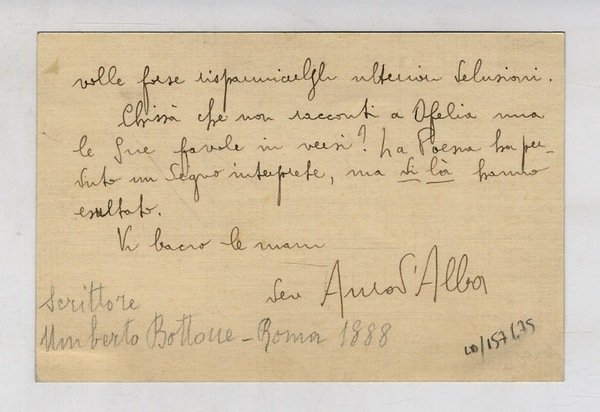 volle forse risparmiargli ulteriori delusioni.
Chissà che non racconti a Ofelia una
le Sue favole in versi? La Poesia ha per-
duto un degno interprete, ma di là hanno
esultato.
Vi bacio le mani
dev Auro d'Alba
Scrittore
Umberto Bottone - Roma 1888